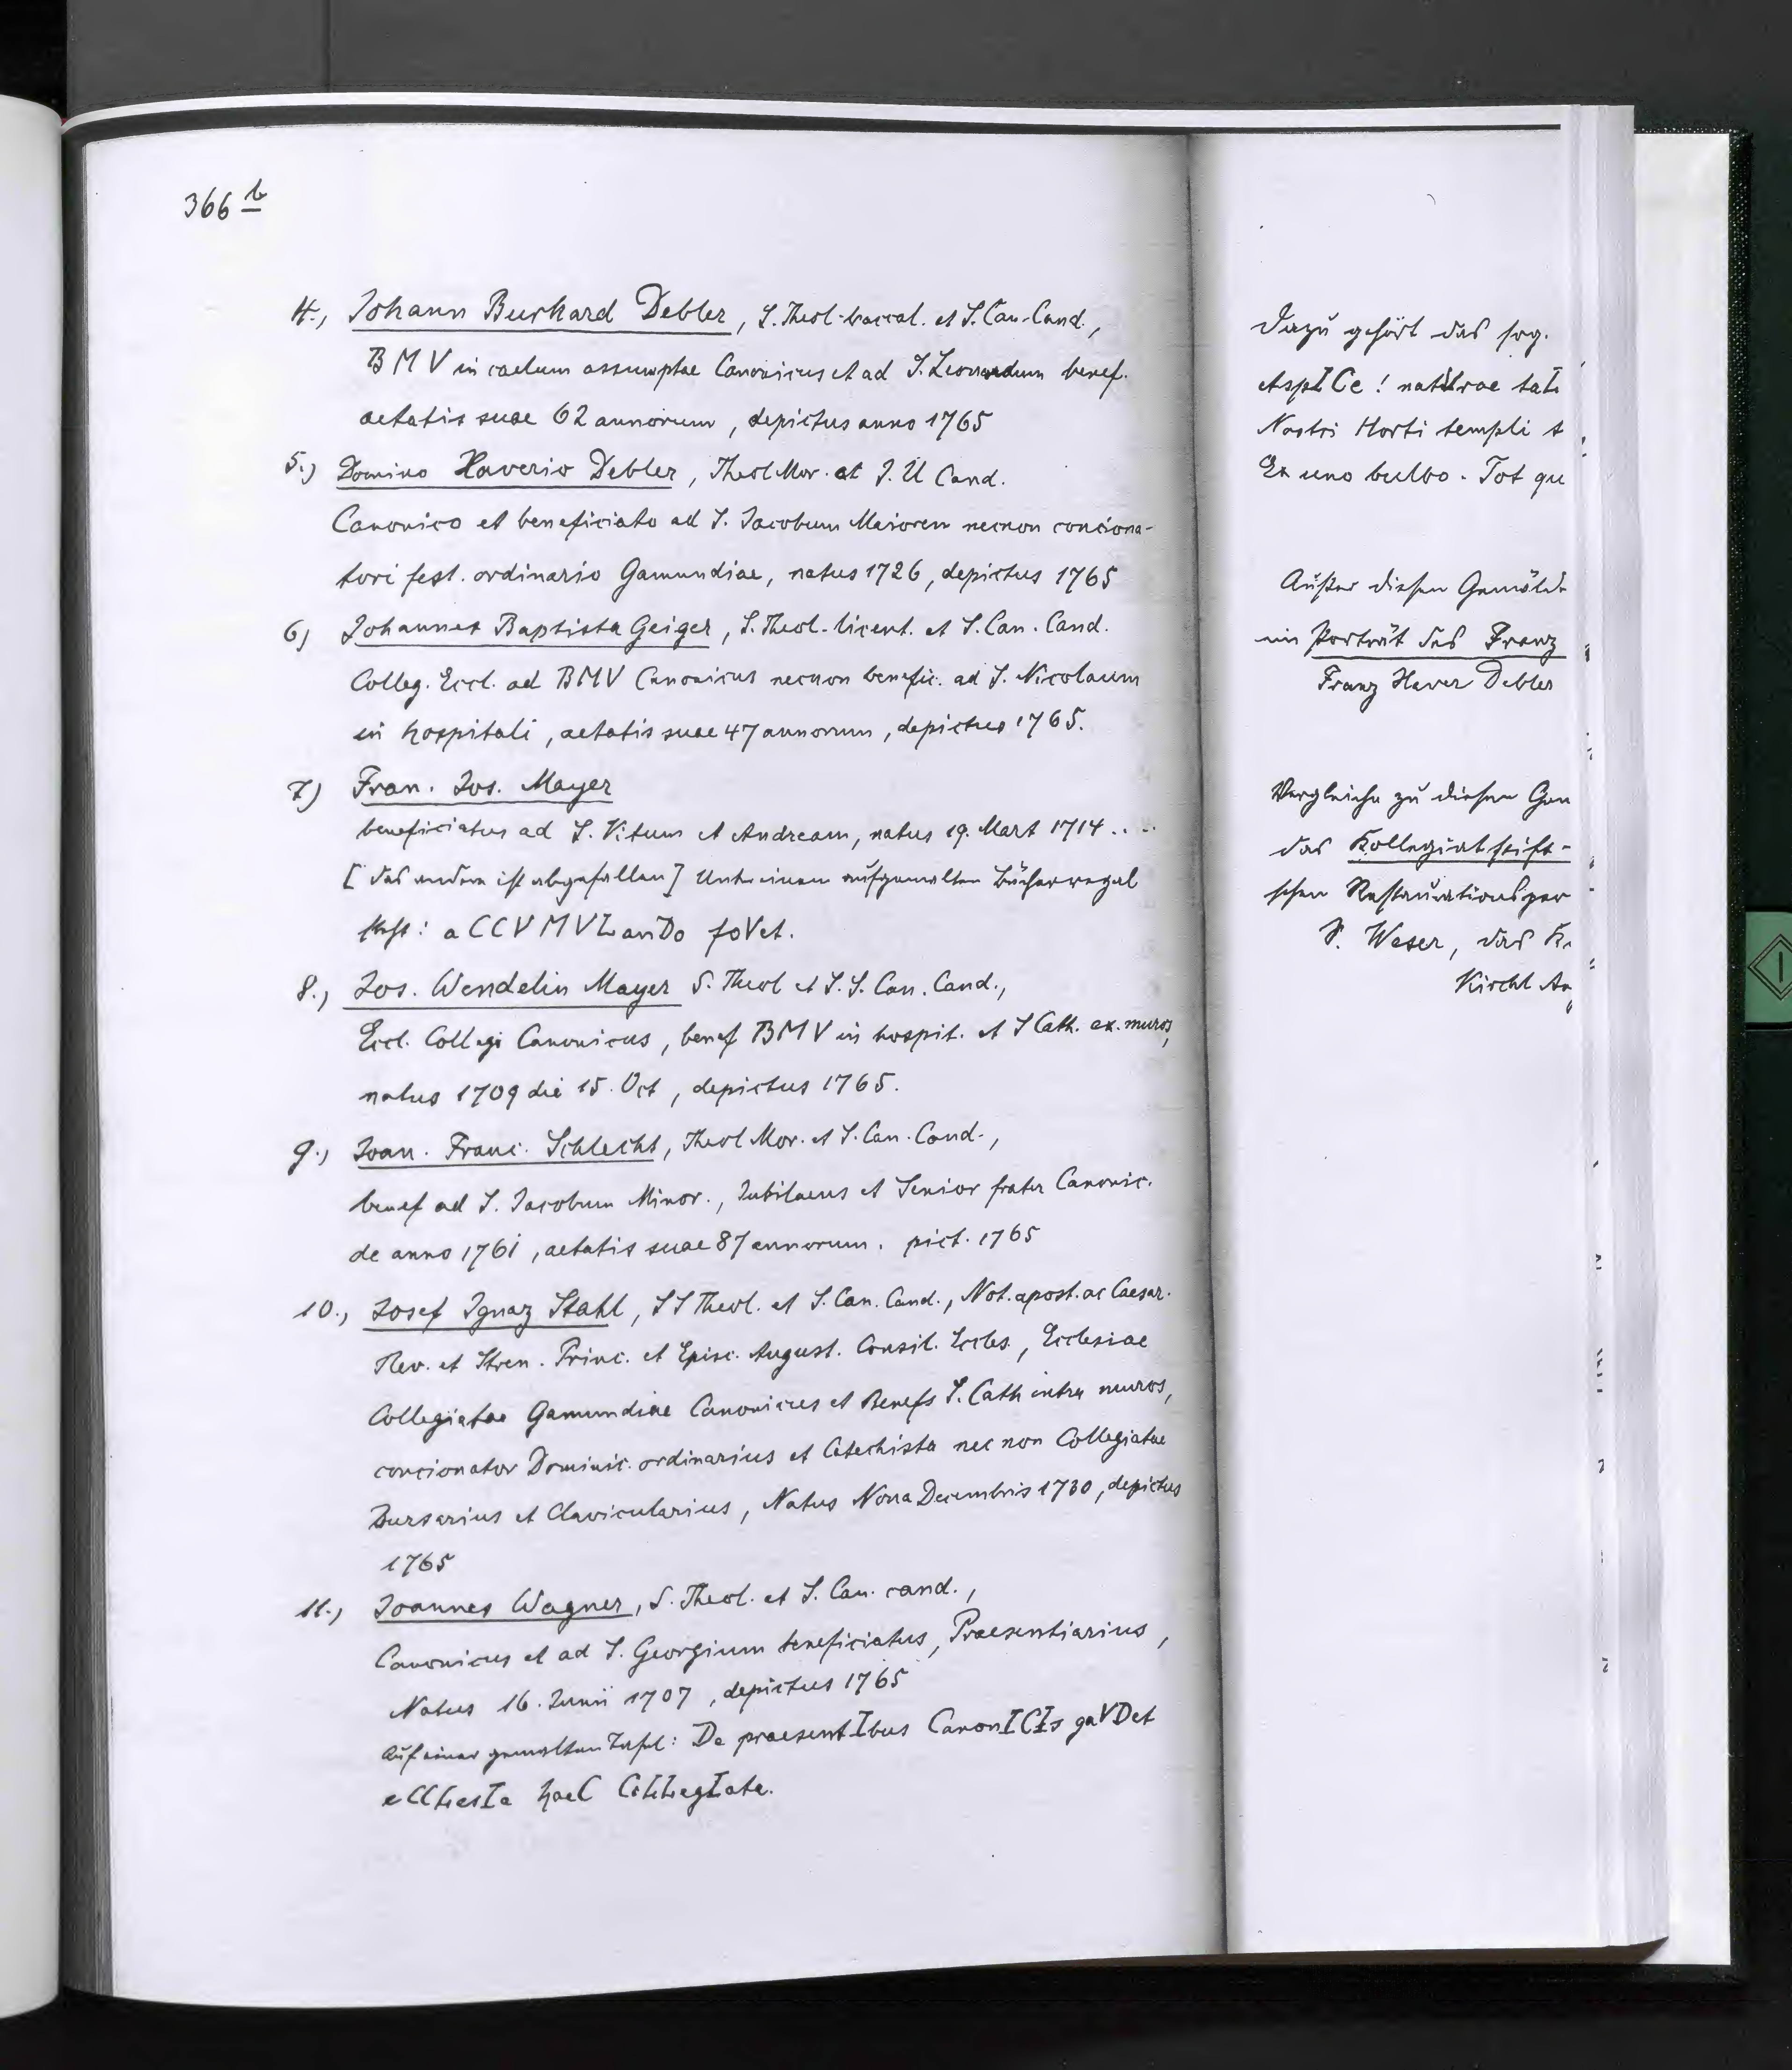 366 b
4., Johann Burkard Debler, S. Theol. baccal. et S. Can. Cand.,
BMV in caelum assumptae Canonicus et ad S. Leonardum benef.
aetatis suae 62 annorum, depictus anno 1765
5.) Domino Xaverio Debler, Theol Mor. et J. U Cand.
Canonico et beneficiato ad S. Jacobum Maiorem necnon conciona-
tori fest. ordinario Gamundiae, natus 1726, depictus 1765
6) Johannes Baptista Geiger, S. Theol. licent. et S. Can. Cand.
Colleg. Eccl. ad BMV Canonicus necnon benefic. ad S. Nicolaum
in hospitali, aetatis suae 47 annorum, depictus 1765.
7) Fran. Jos. Mayer
beneficiatus ad S. Vitum et Andream, natus 19. Mart 1714 ....
[das andere ist abgefallen] Unter einem aufgemalten Bücherregal
steht: aCCVMVLanDo foVet.
8., Jos. Wendelin Mayer S. Theol et S. S. Can. Cand.,
Eccl. Collegi Canonicus, benef BMV in hospit. et S Cath. ex. muros,
natus 1709 die 15. Oct, depictus 1765.
9., Joan. Franc. Schlecht, Theol Mor. et S. Can. Cand.,
benef ad S. Jacobum Minor., Jubilaeus et Senior frater Canonic.
de anno 1761, aetatis suae 87 annorum. pict. 1765
10., Josef Ignaz Stahl, SS Theol. et S. Can. Cand., Not. apost. ac Caesar.
Rev. et Stren. Princ. et Episc. August. Consil. Eccles., Ecclesiae
Collegiatae Gamundiae Canonicus et Benefs S. Cath intra muros,
concionator Dominic. ordinarius et Catechista nec non Collegiatae
Bursarius et Clavicularius, Natus Nona Decembris 1730, depictus
1765
11., Joannes Wagner, S. Theol. et S. Can. cand.,
Canonicus et ad S. Georgium beneficiatus, Praesentiarius,
Natus 16. Junii 1707, depictus 1765
Auf einer gemalten Tafel: De praesentIbus CanonICIs gaVDet
eCCLesIa haeC CoLLegIata.
Dazu gehört das sog.
AspICe! natUrae
Nostri Horti templi
Ex uno bulbo. Tot qu
Außer diesen Gemälde
ein Porträt des Franz
Franz Xaver Debler
Vergleiche zu diesen Gem
das Kollegiatstift-
schen Restaurationsper
S. Weser, das
Kirchl